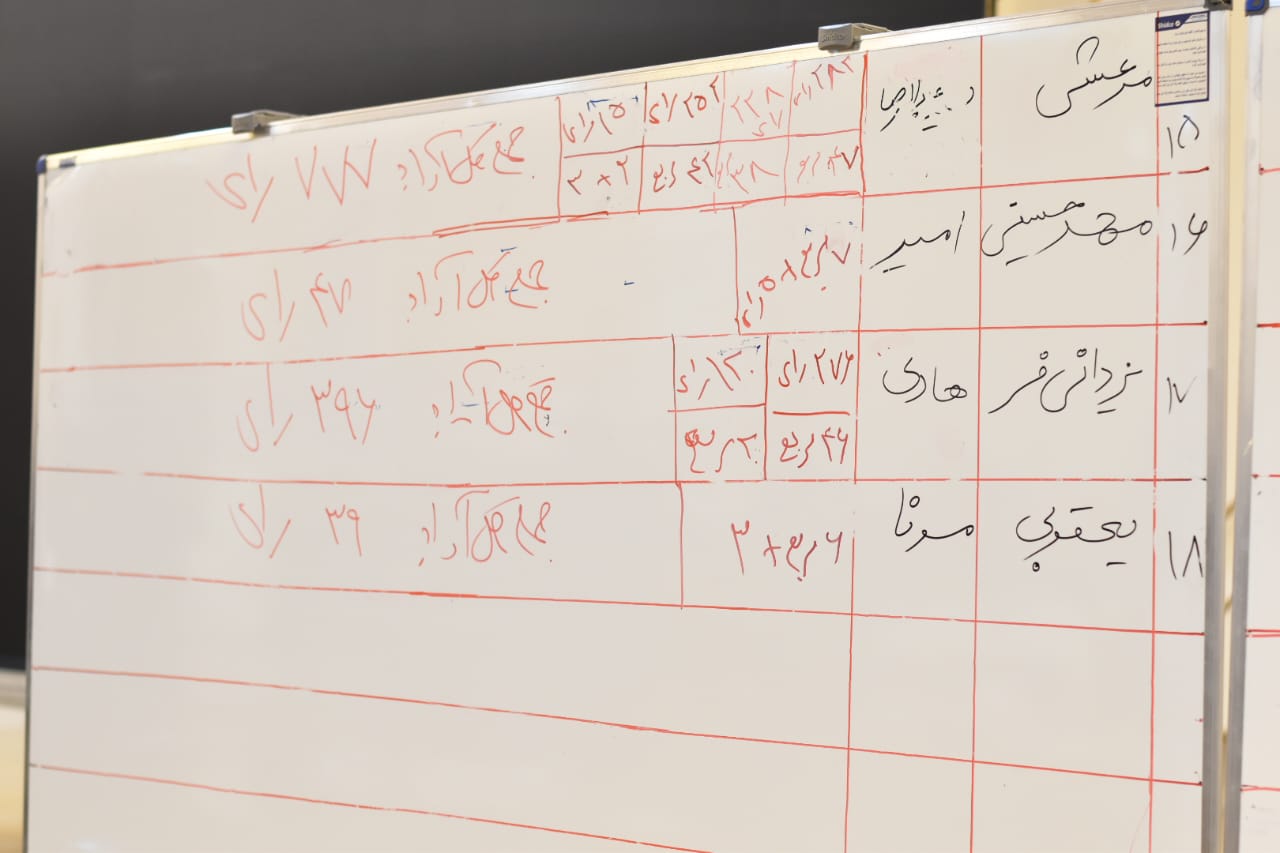 ۱۵ مرعشی
۲۸۲ رای ۲۲۸ رای ۲۵۲ رای ۱۵ رای
۴۷ ربع ۳۸ ربع ۴۲ ربع ۲ × ۳
جمع کل آراء: ۷۷۷ رای
۱۶ مهدحسینی امیر
جمع کل آراء: ۴۷ رای
۱۷ یزدانی‌فر هادی
۲۷۶ رای ۱۲۰ رای
۴۶ ربع ۲۰ ربع
جمع کل آراء: ۳۹۶ رای
۱۸ یعقوبی مونا
۶ ربع + ۳
جمع کل آراء: ۳۹ رای